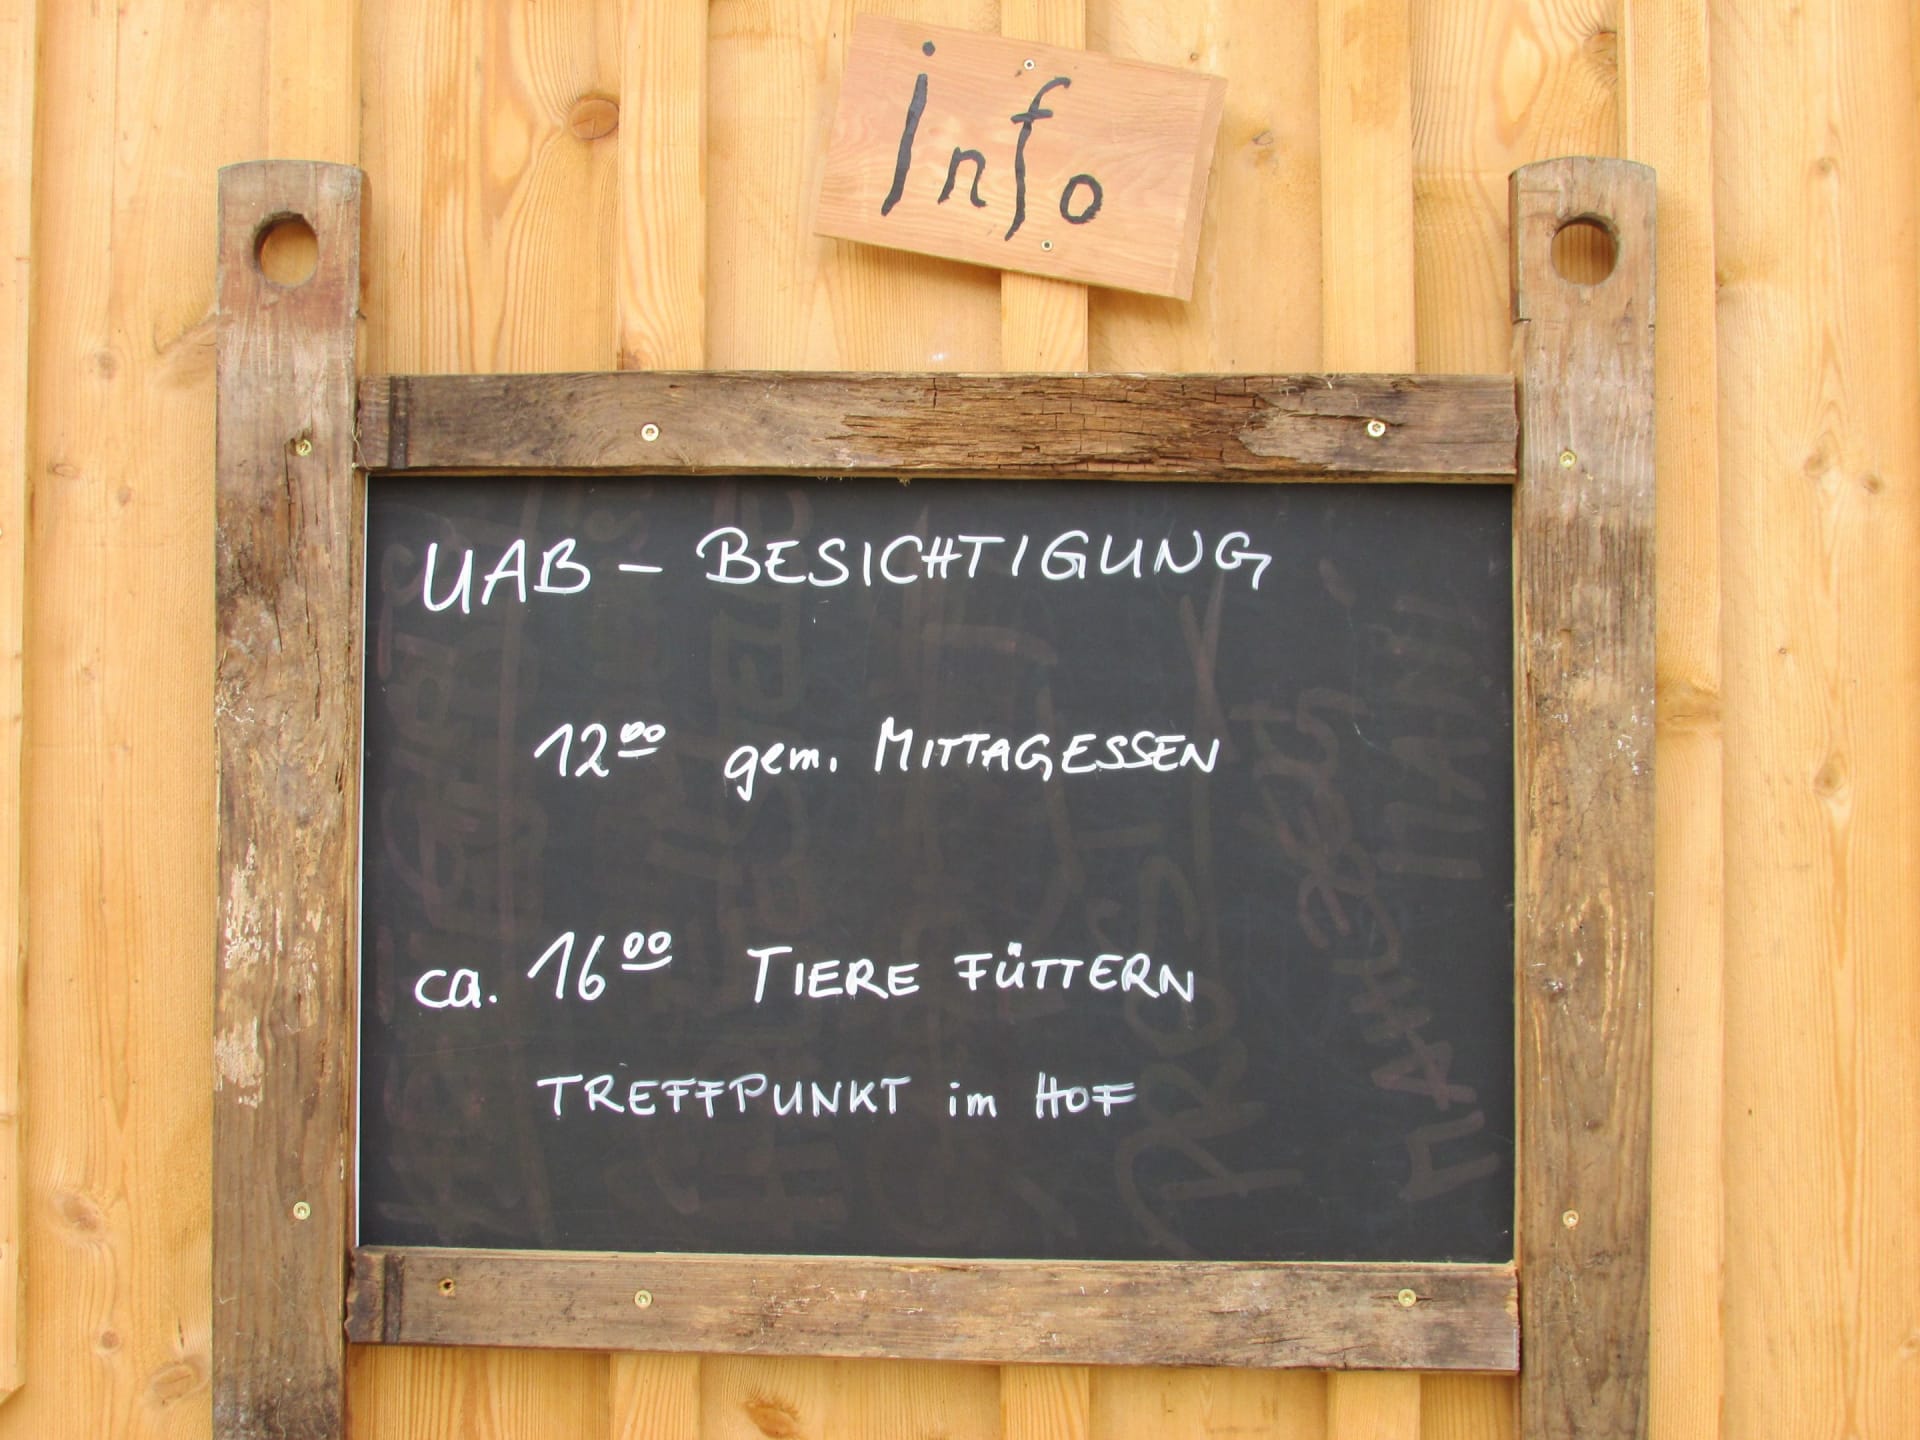 info
UAB - BESICHTIGUNG
12⁰⁰ gem. MITTAGESSEN
ca. 16⁰⁰ TIERE FÜTTERN
TREFFPUNKT im HOF